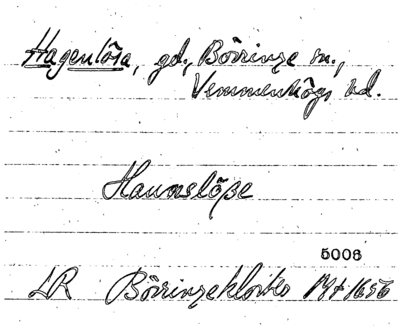 Hagenlösa, gd., Börringe sn.,
Vemmenhögs hd.
Haunslöße
5006
LR Börringekloster 1656